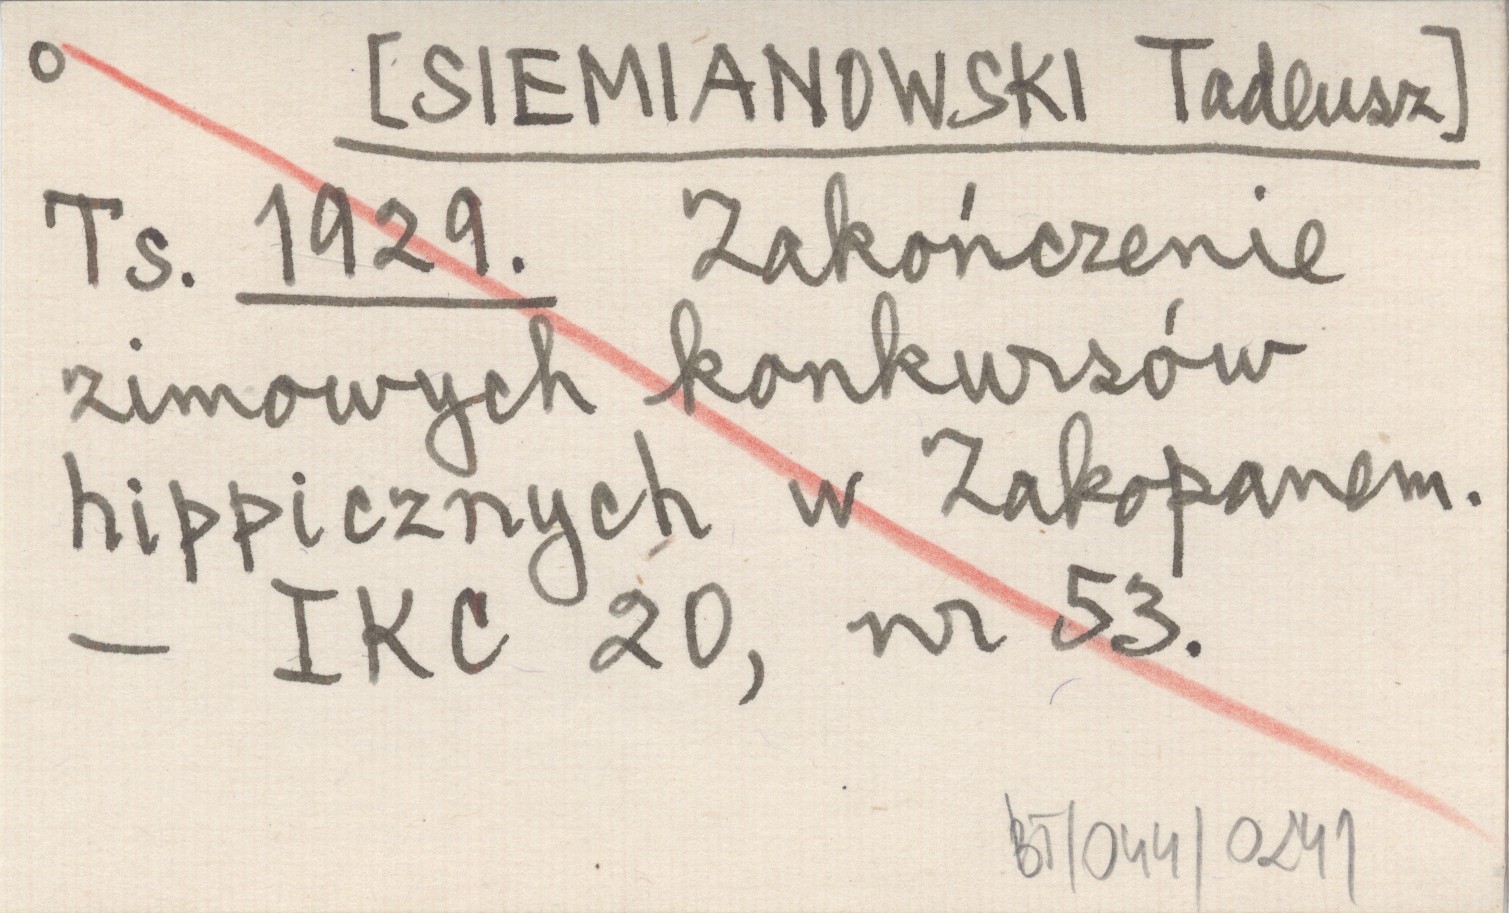 o [SIEMIANOWSKI Tadeusz]
Ts. 1929. Zakończenie
zimowych konkursów
hippicznych w Zakopanem.
— IKC 20, nr 53.
BT/044/0241